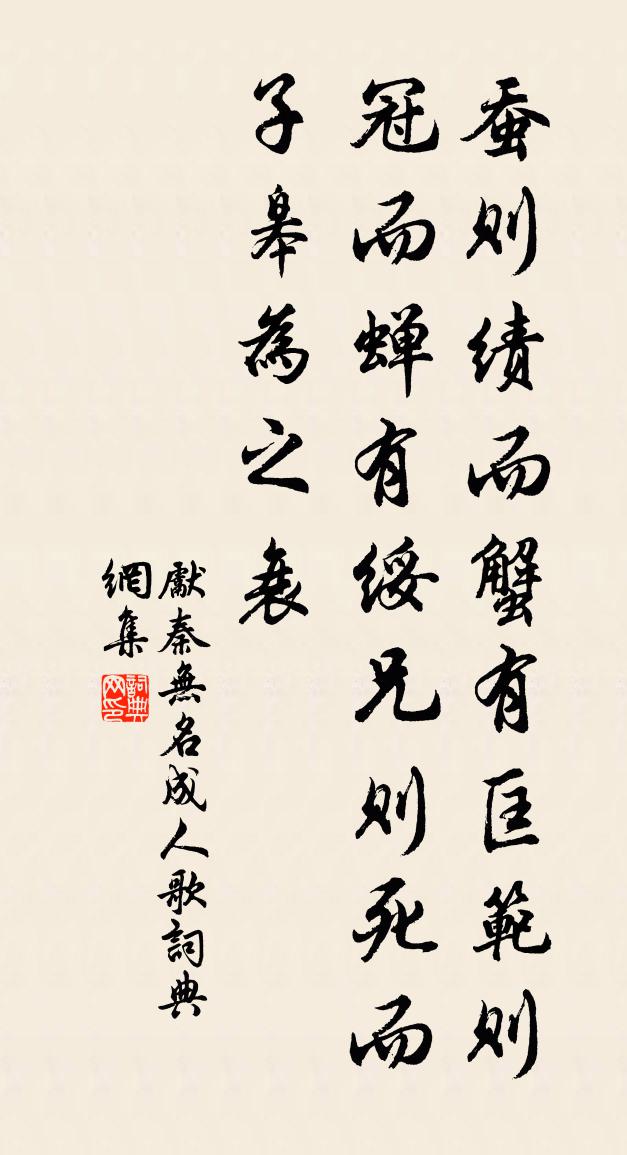 蚕则绩而蟹有匡範则
冠而蝉有绥兄则死而
子皋為之衰
獻秦無名成人歌詞典
網集
詞典
网印